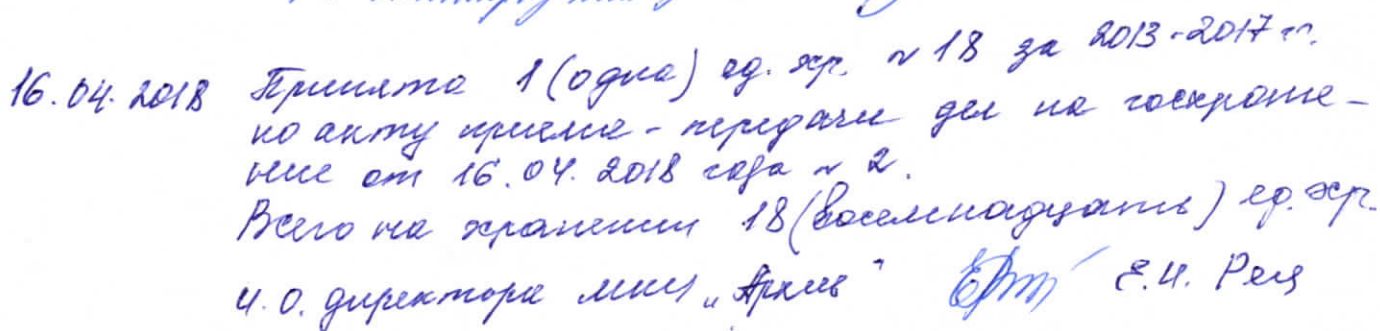 16.04.2018 Принята 1 (одна) ед. хр. № 18 за 2013-2017 гг.
по акту приема-передачи дел на госхране-
ние от 16.04.2018 года № 2.
Всего на хранении 18 (восемнадцать) ед. хр.
И.О. директора МКУ „Архив" Е.И.